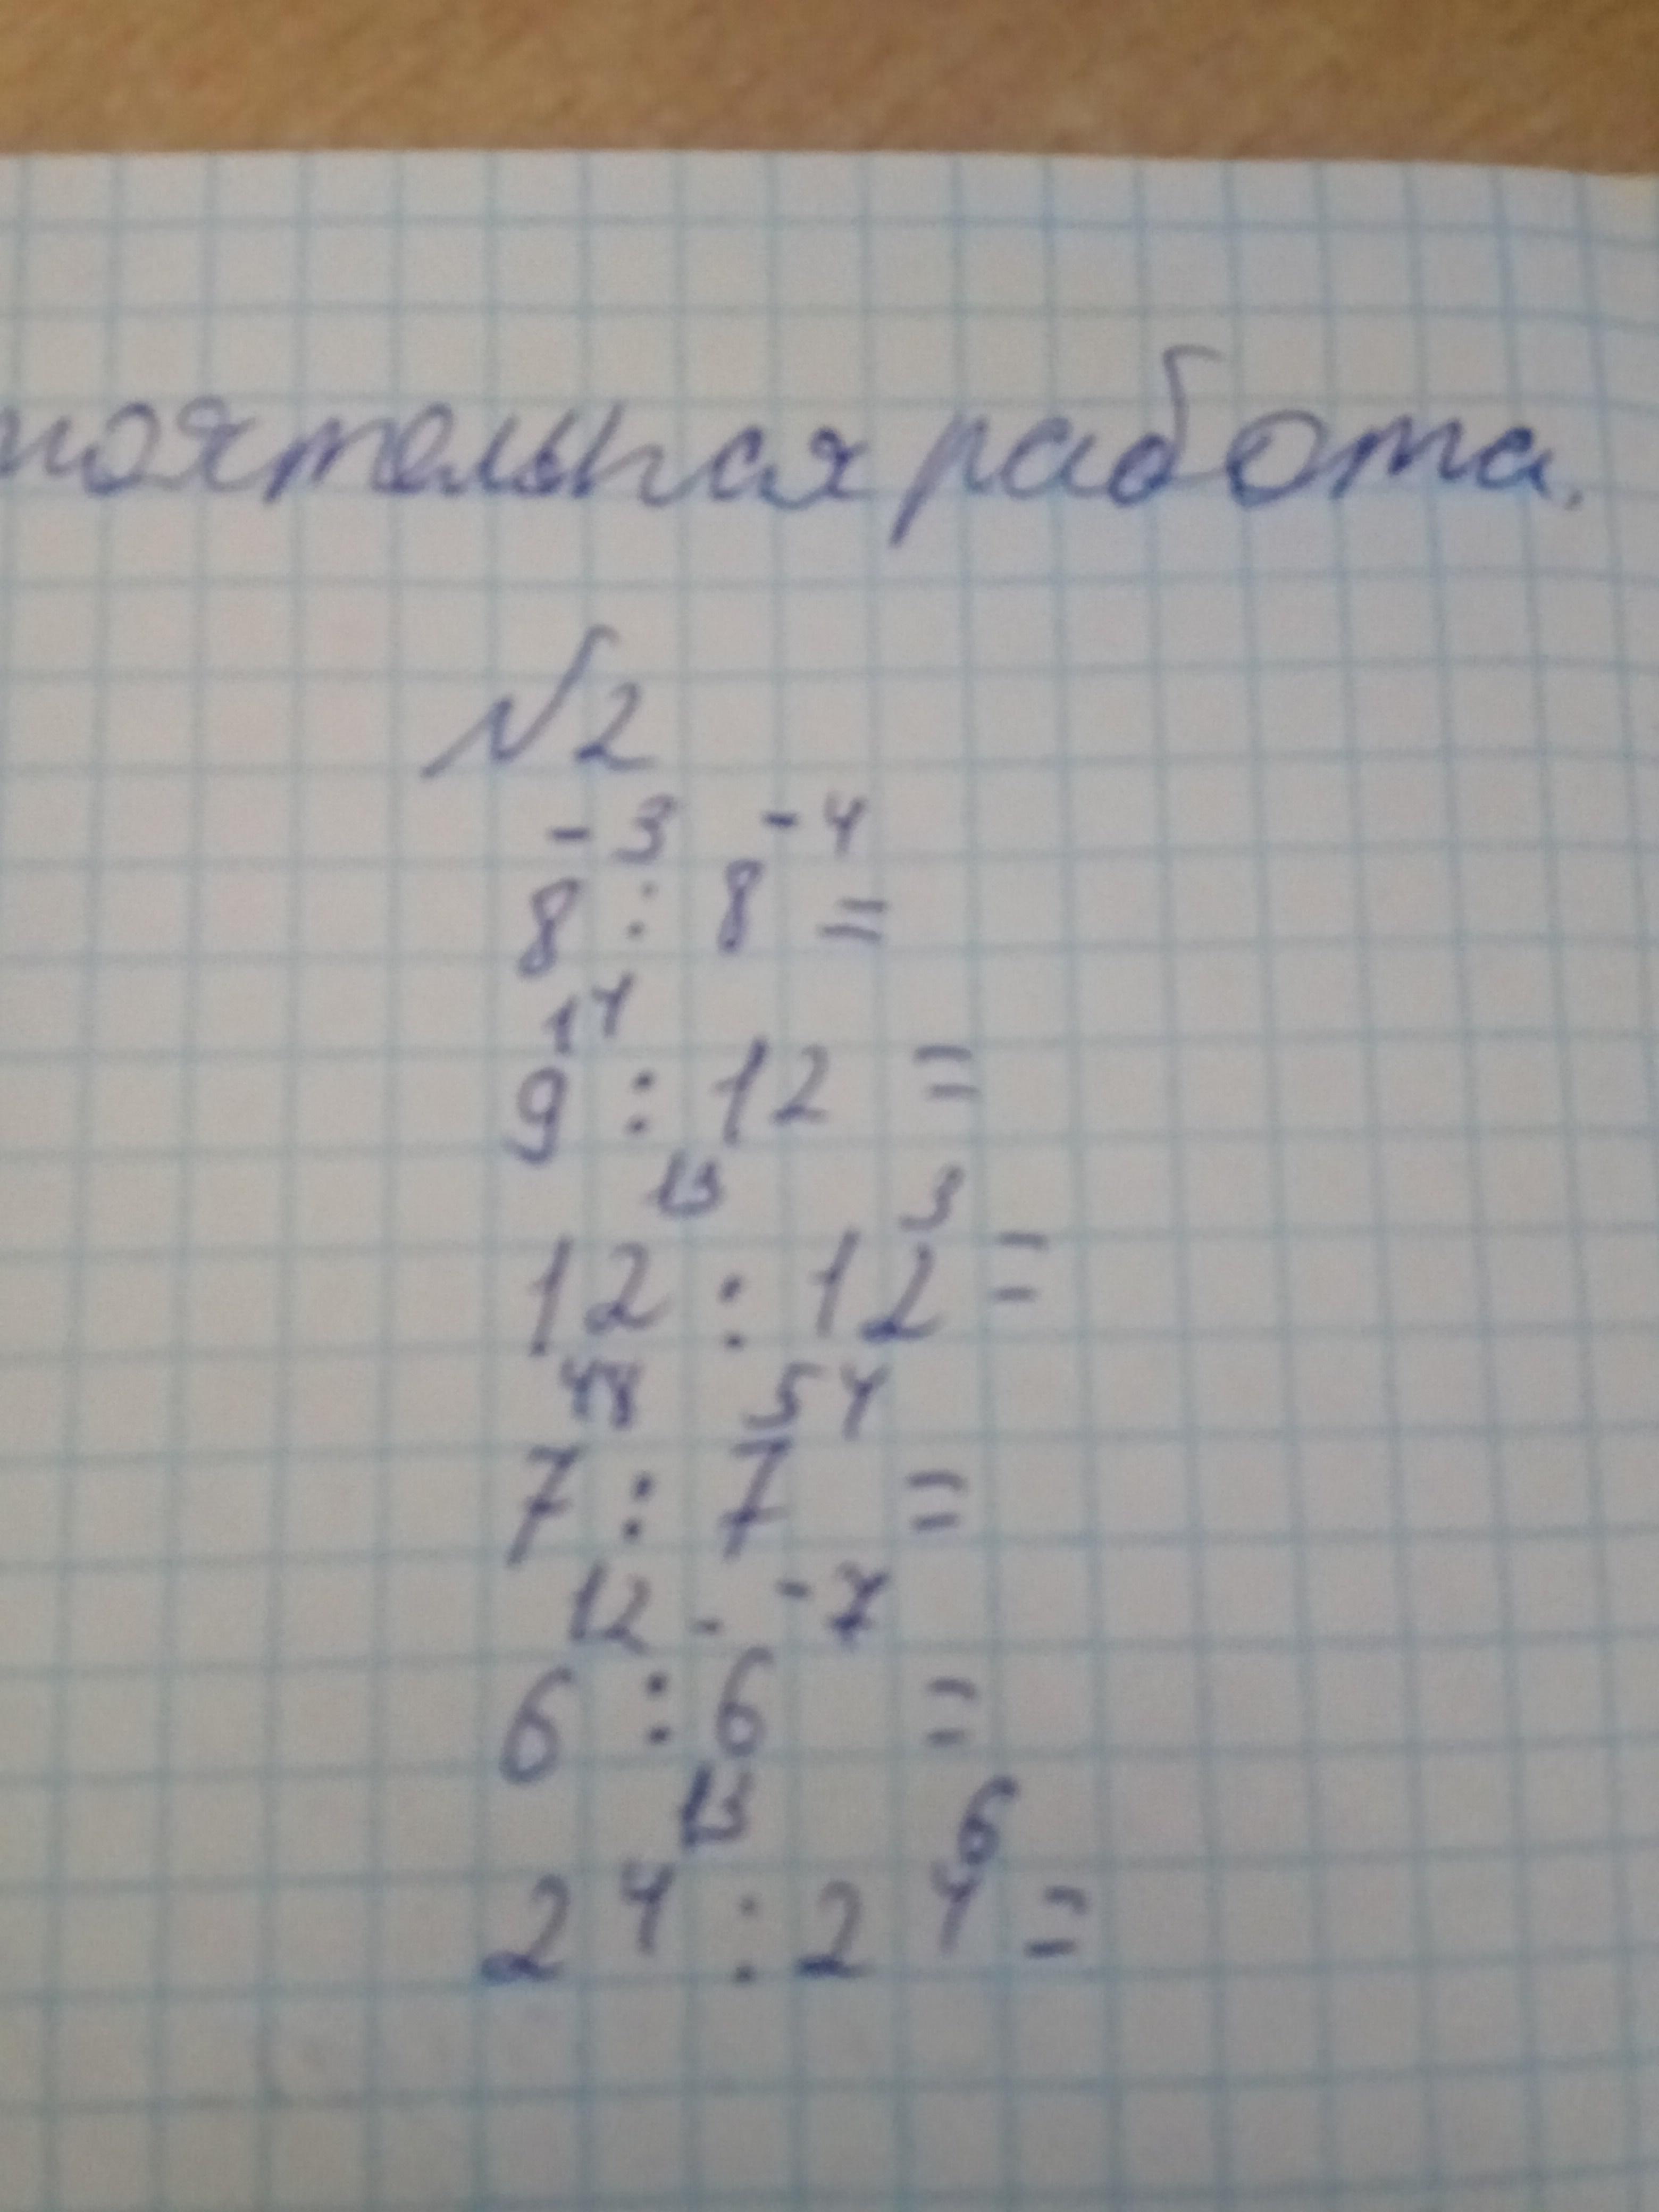 работа.
№2
8⁻³ : 8⁻⁴ =
9¹⁴ : 12 =
12¹³ : 12³ =
7⁴⁸ : 7⁵⁴ =
6¹² : 6⁻⁷ =
24¹³ : 24⁶ =